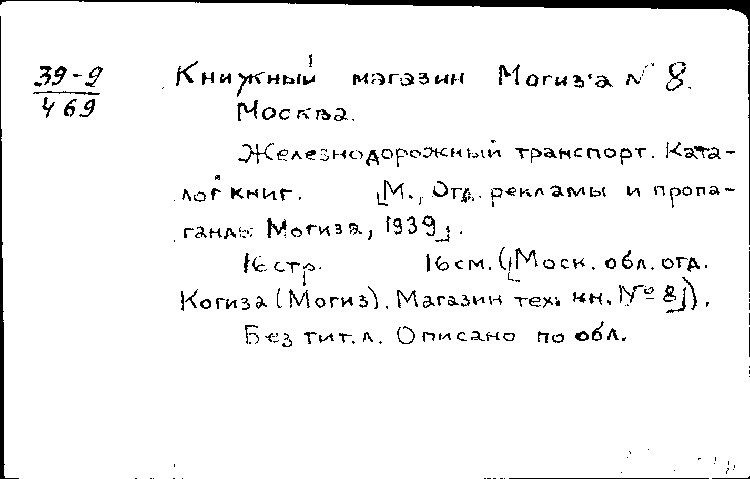 39-9
469
Книжный магазин Могиз'а № 8.
Москва.
Железнодорожный транспорт. Ката-
лог книг. [М., Отд. рекламы и пропа-
ганды Могиза, 1939].
16 стр. 16 см. ([Моск. обл. отд.
Когиза (Могиз). Магазин техн. кн. № 8]).
Без тит. л. Описано по обл.